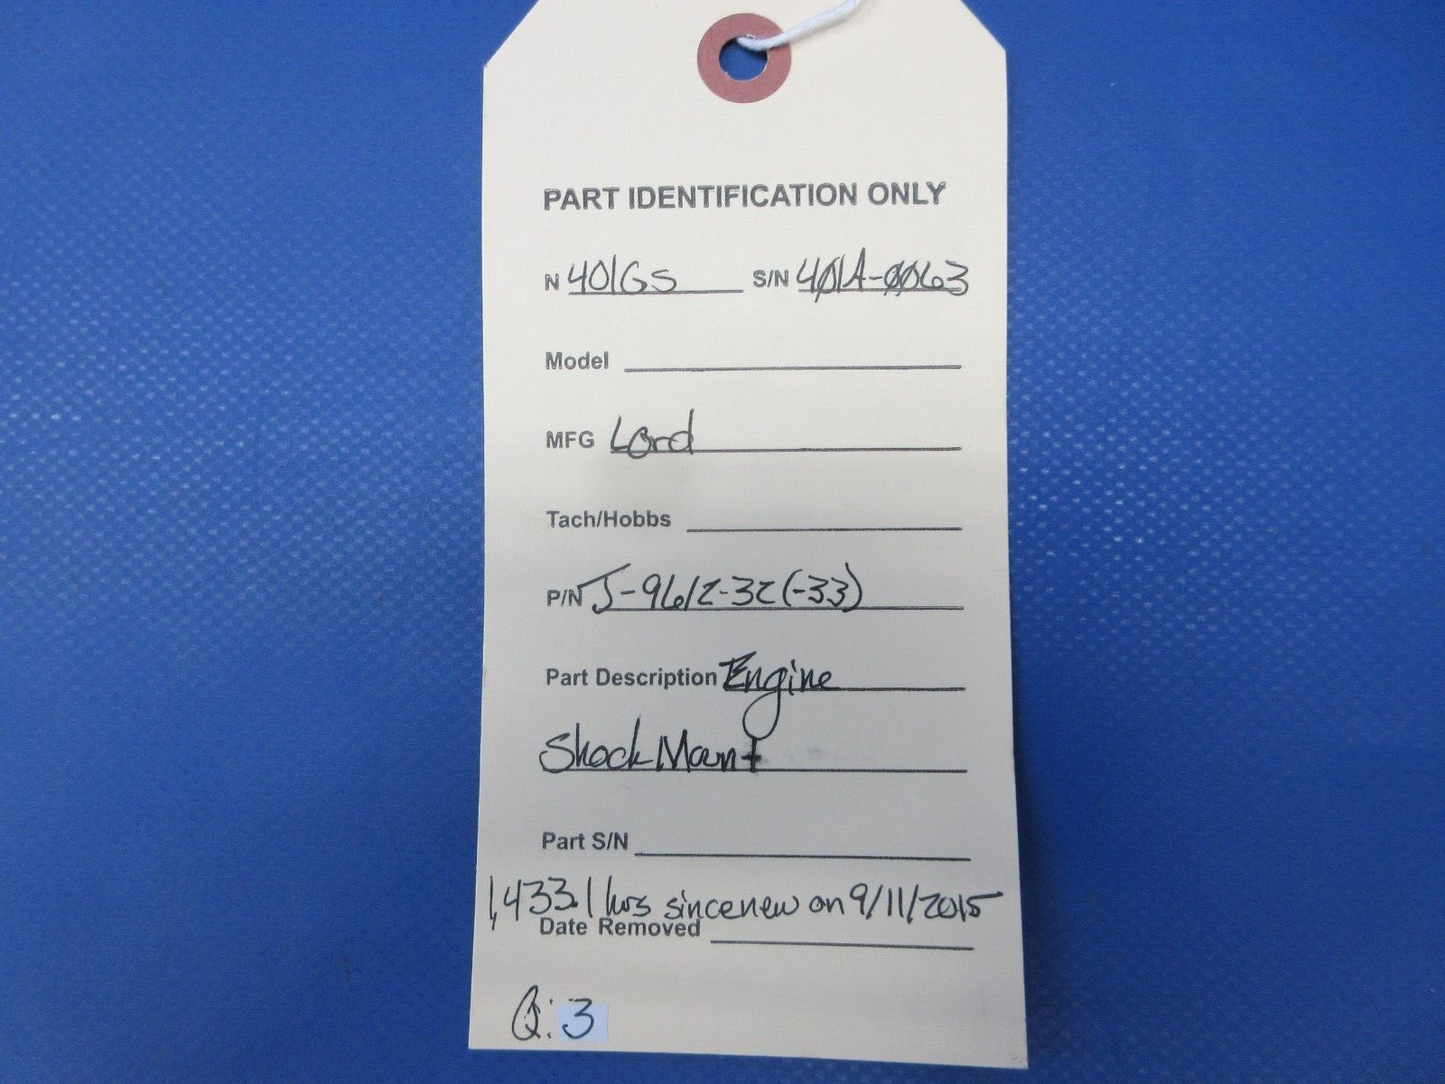 PART IDENTIFICATION ONLY
N 401GS S/N 401A-0063
Model
MFG Lord
Tach/Hobbs
P/N J-9612-32(-33)
Part Description Engine
Shock Mount
Part S/N
1,433.1 hrs since new on 9/11/2015
Date Removed
Q: 3